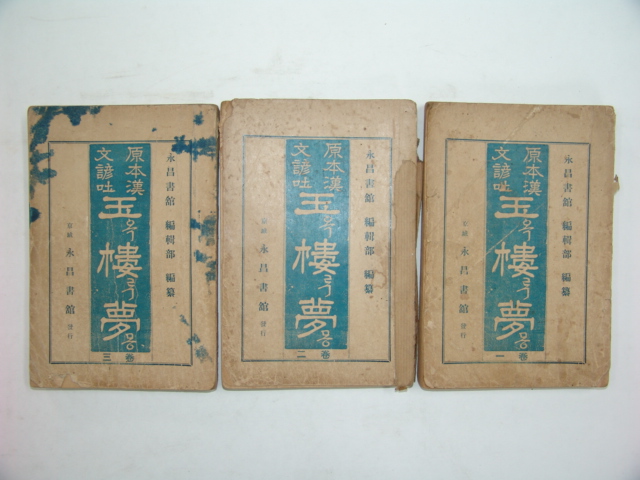 永昌書館 編輯部 編纂
原本漢
文諺吐
玉옥樓루夢몽
京城 永昌書館 發行
卷三
永昌書館 編輯部 編纂
原本漢
文諺吐
玉옥樓루夢몽
京城 永昌書館 發行
卷二
永昌書館 編輯部 編纂
原本漢
文諺吐
玉옥樓루夢몽
京城 永昌書館 發行
卷一